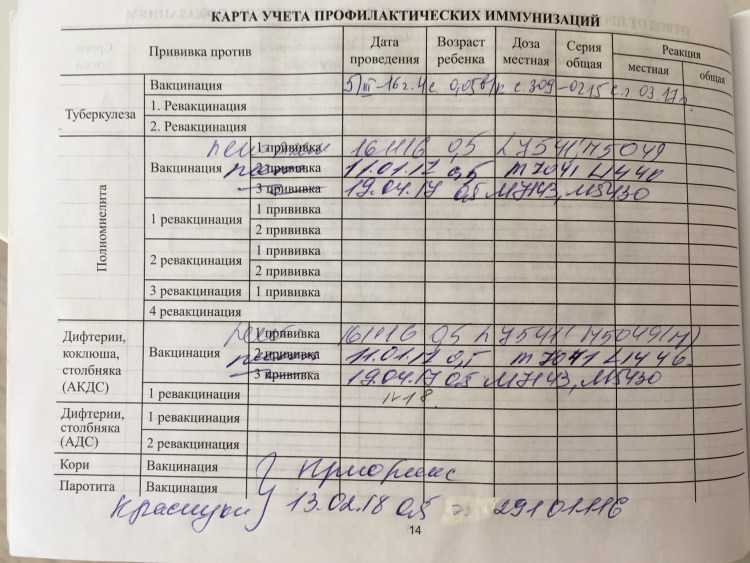 КАРТА УЧЕТА ПРОФИЛАКТИЧЕСКИХ ИММУНИЗАЦИЙ
Прививка против Дата проведения Возраст ребенка Доза местная Серия общая Реакция
местная общая
Туберкулеза Вакцинация 0,05 с.309
1. Ревакцинация
2. Ревакцинация
Полиомиелита Вакцинация 1 прививка 161116 0,5 L7541, М5049
2 прививка 11.01.17 0,5 m7041
3 прививка 19.04.17 0,5 М7143, М5430
1 ревакцинация 1 прививка
2 прививка
2 ревакцинация 1 прививка
2 прививка
3 ревакцинация 1 прививка
4 ревакцинация
Дифтерии, коклюша, столбняка (АКДС) Вакцинация 1 прививка 161116 0,5 L7541
2 прививка 11.01.17 0,5 m7041 L1446
3 прививка 19.04.17 0,5 М7143, М5430
1 ревакцинация
Дифтерии, столбняка (АДС) 1 ревакцинация
2 ревакцинация
Кори Вакцинация Приорикс
Паротита Вакцинация
Краснухи 13.02.18 0,5 29101116
14